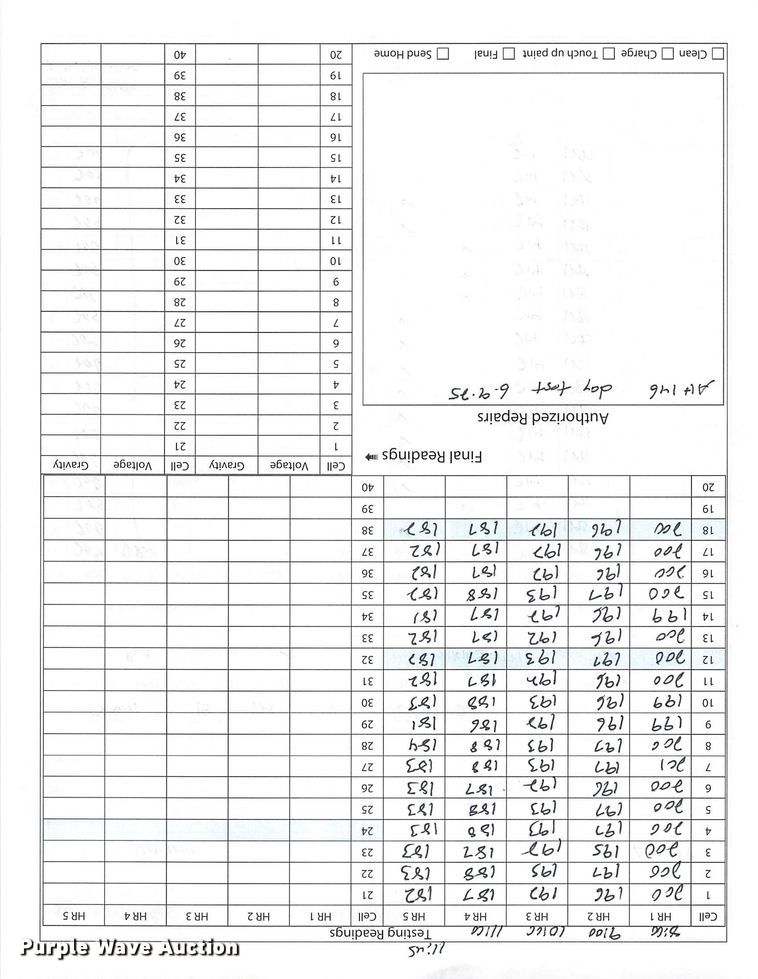 11:45
8:00 9:00 10:00 11:00 Testing Readings
Cell HR 1 HR 2 HR 3 HR 4 HR 5 Cell HR 1 HR 2 HR 3 HR 4 HR 5
1 200 196 192 187 182 21
2 200 197 195 188 183 22
3 200 195 192 187 183 23
4 200 197 193 188 183 24
5 200 197 193 188 183 25
6 200 196 192 187 183 26
7 201 197 193 188 183 27
8 200 197 193 188 184 28
9 199 196 192 186 181 29
10 199 196 193 188 183 30
11 200 196 192 187 182 31
12 200 197 193 187 182 32
13 200 196 192 187 182 33
14 199 196 192 187 181 34
15 200 197 193 188 182 35
16 200 196 192 187 182 36
17 200 196 192 187 182 37
18 200 196 192 187 182 38
19 39
20 40
Final Readings
Authorized Repairs
AH 146 day test 6-9-25
Clean Charge Touch up paint Final Send Home
Cell Voltage Gravity Cell Voltage Gravity
1 21
2 22
3 23
4 24
5 25
6 26
7 27
8 28
9 29
10 30
11 31
12 32
13 33
14 34
15 35
16 36
17 37
18 38
19 39
20 40
Purple Wave Auction